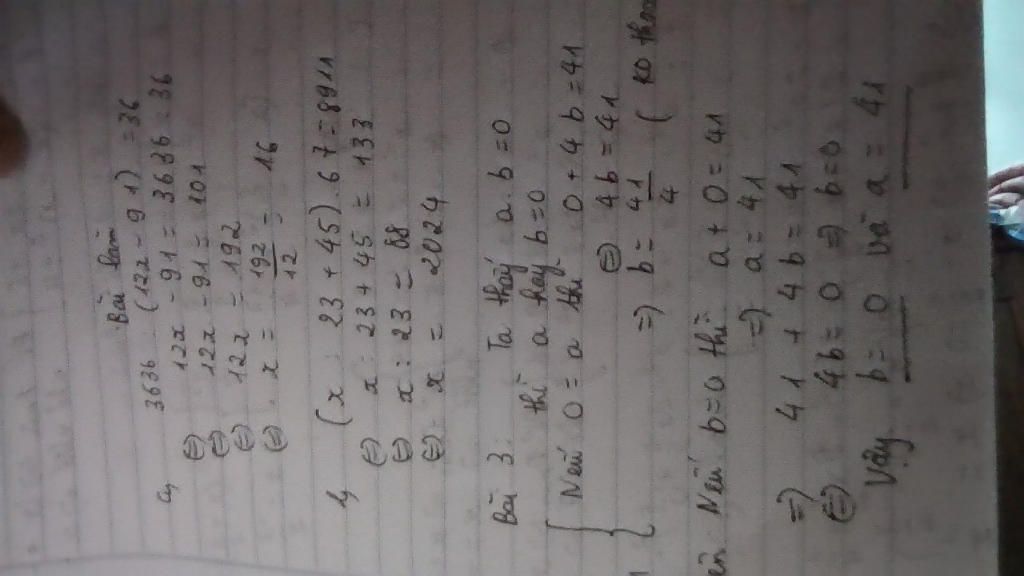 Bài làm
a, 3636 : (12x - 91) = 36
12x - 91 = 3636 : 36
⇔ 12x - 91 = 101
⇔ 12x = 192
⇔ x = 192/12 = 16
b, (x : 23 + 45) . 67 = 8911
⇔ x : 23 + 45 = 133
⇔ x : 23 = 88
⇔ x = 2024
Bài 3: Ta thấy a.b = 0
thì a hay b = 0
Nếu 0 = a thì 0 + 4b = 41
⇔ 4b = 41
⇒ b = 41/4 ( ko
Nếu b = 0 thì a + 0 = 41
⇒ a = 41
⇒ 41 + 4b = 41
⇔ 4b = 0 ⇒ b = 0
Vậy b = 0 và a = 41